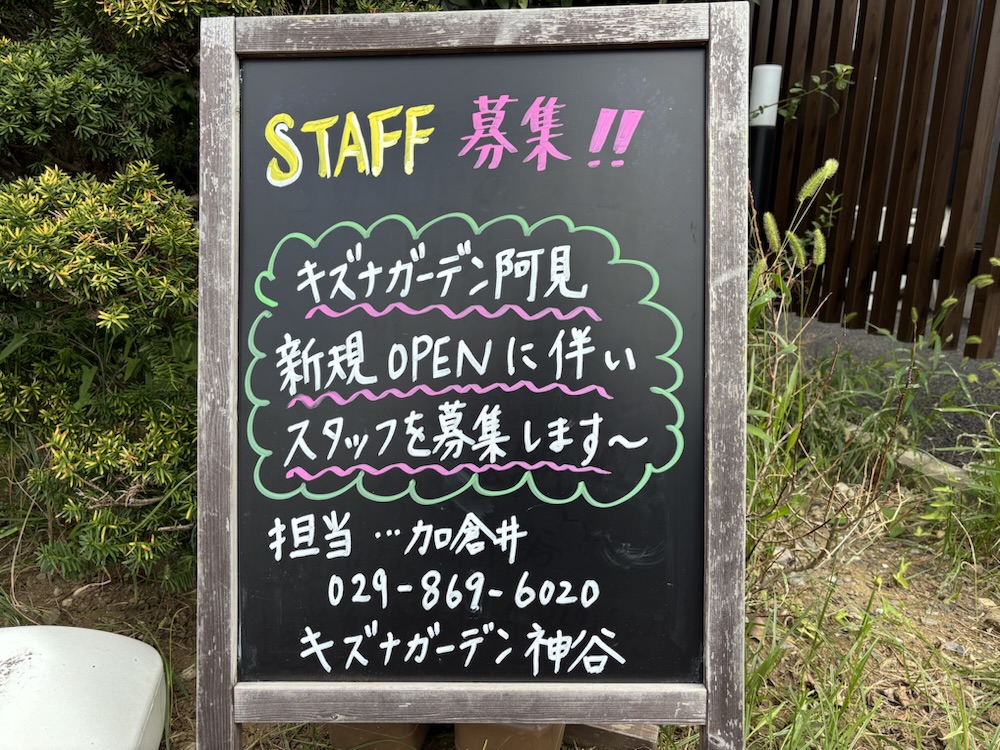 STAFF 募集!!
キズナガーデン阿見
新規OPENに伴い
スタッフを募集します〜
担当…加倉井
029-869-6020
キズナガーデン神谷